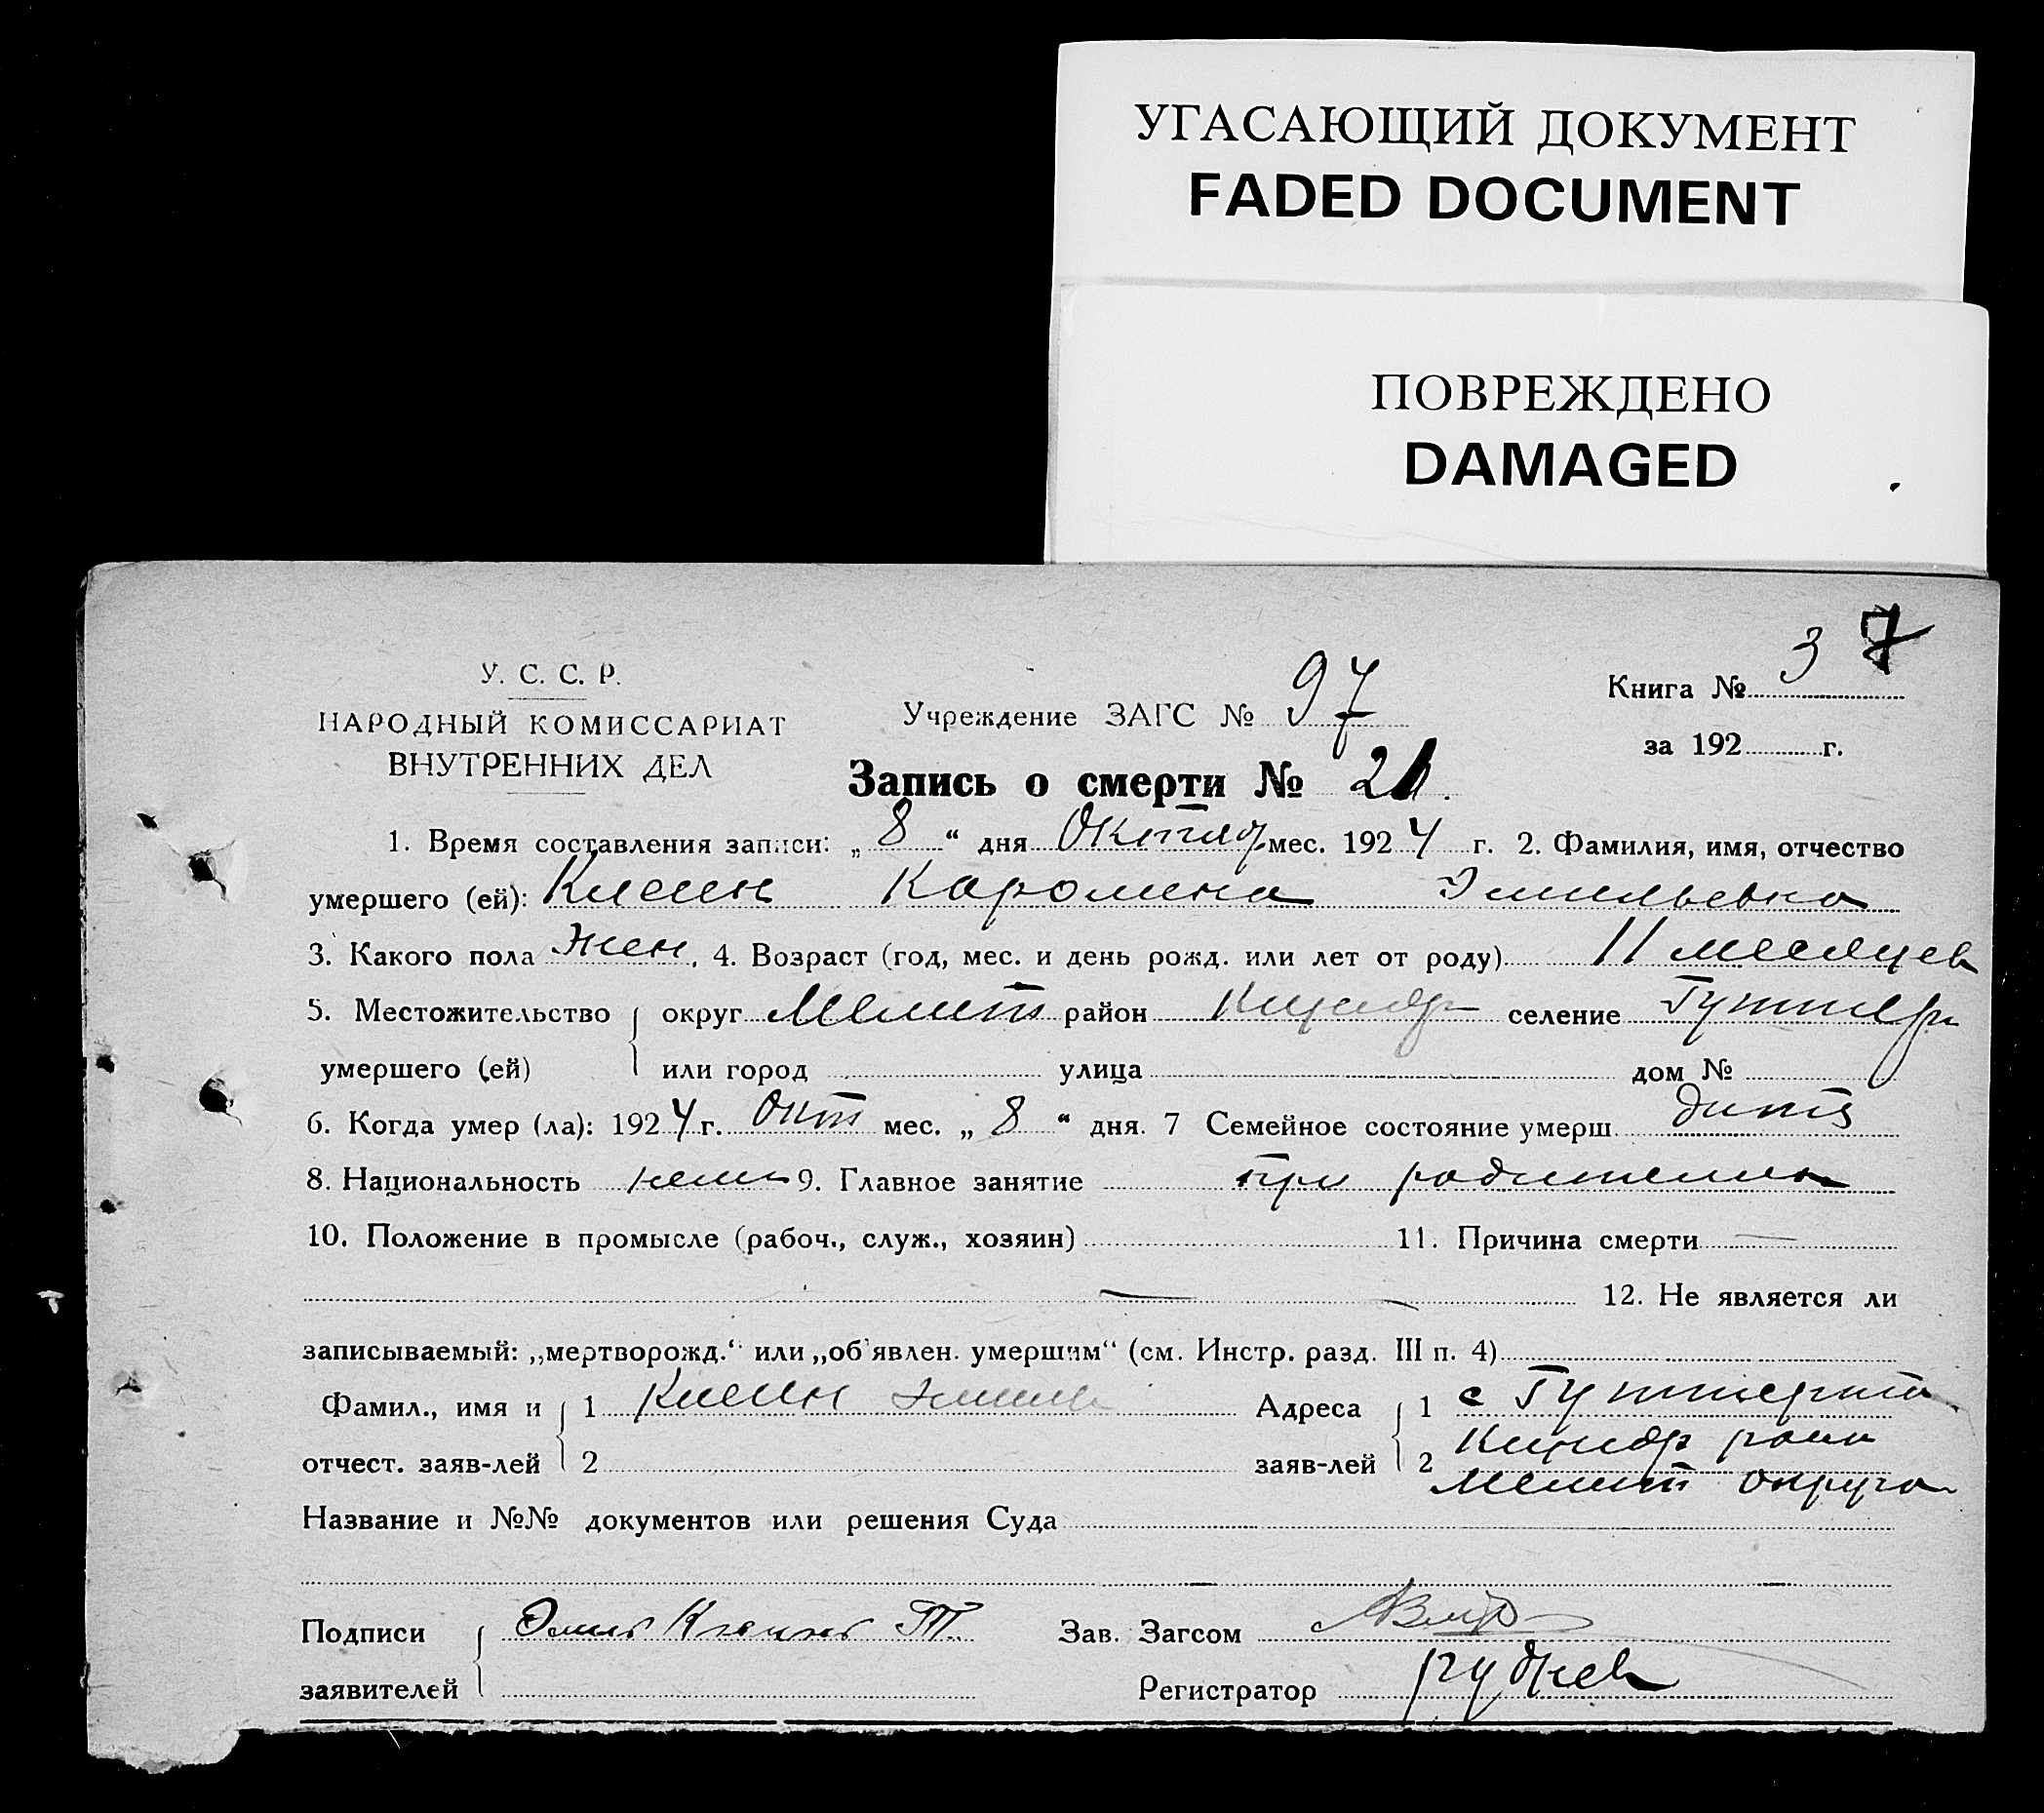 УГАСАЮЩИЙ ДОКУМЕНТ
FADED DOCUMENT
ПОВРЕЖДЕНО
DAMAGED
У. С. С. Р.
НАРОДНЫЙ КОМИССАРИАТ
ВНУТРЕННИХ ДЕЛ
Учреждение ЗАГС № 97
Книга № 3 7
за 192 г.
Запись о смерти № 21.
1. Время составления записи: „ 8 “ дня Октяб мес. 192 4 г. 2. Фамилия, имя, отчество
умершего (ей): Клейн Каролина Эмильевна
3. Какого пола жен. 4. Возраст (год, мес. и день рожд. или лет от роду) 11 месяцев
5. Местожительство округ Мелит район селение
умершего (ей) или город улица дом №
6. Когда умер (ла): 192 4 г. Окт мес. „ 8 “ дня. 7 Семейное состояние умерш. дитя
8. Национальность нем 9. Главное занятие при родителях
10. Положение в промысле (рабоч., служ., хозяин) 11. Причина смерти —
12. Не является ли
записываемый: „мертворожд.“ или „об'явлен. умершим“ (см. Инстр. разд. III п. 4)
Фамил., имя и 1 Клейн Эмиль Адреса 1 с
отчест. заяв-лей 2 заяв-лей 2 района
Мелит округа
Название и №№ документов или решения Суда
Подписи Зав. Загсом
заявителей Регистратор